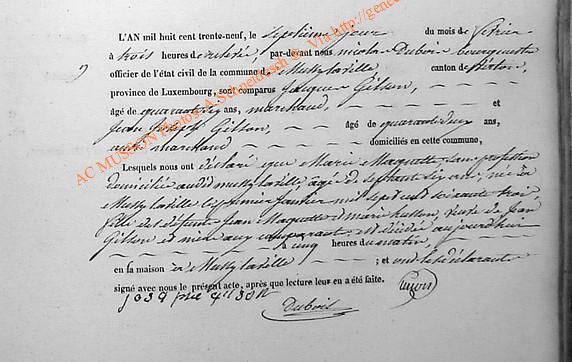 L'AN mil huit cent trente-neuf, le septieme jour du mois de fevrier
à trois heures de relevée, par-devant nous nicolas Dubois bourgmestre
officier de l'état civil de la commune de Mussy laville canton de Virton,
province de Luxembourg, sont comparus Jacques Gilson,
âgé de quarante six ans, marchand, et
Jean Joseph Gilson, âgé de quarante deux ans,
aussi marchand domiciliés en cette commune,
Lesquels nous ont déclaré que Marie Maquette sans profession
domiciliée audit mussy laville, âgée de septante six ans, née à
Mussy laville le premier janvier mil sept cent soixante trois,
fille des défunts Jean Maquette et marie husson, veuve de Jean
Gilson et mère aux comparants est décédée aujourd'hui
à cinq heures du matin,
en sa maison à Mussy laville ; et ont les déclarants
signé avec nous le présent acte, après que lecture leur en a été faite.
Dubois
AC MUSSON Photo's A. Schneidesch @ Via http://gene